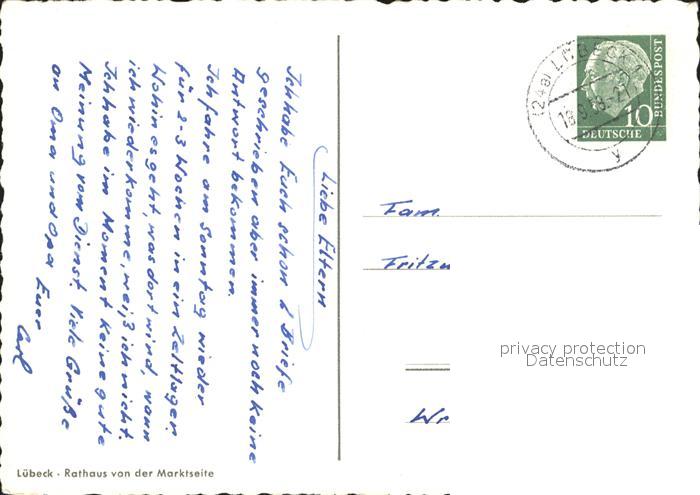 Liebe Eltern
Ich habe Euch schon 2 Briefe
geschrieben aber immer noch keine
Antwort bekommen.
Ich fahre am Sonntag wieder
für 2-3 Wochen in ein Zeltlager.
Wohin es geht, was dort wird, wann
ich wiederkomme, weiß ich nicht.
Ich habe im Moment keine gute
Meinung vom Dienst. Viele Grüße
an Oma und Opa Euer
Carl
Lübeck · Rathaus von der Marktseite
(24a) LÜBECK
10
DEUTSCHE
BUNDESPOST
y
Fam.
Fritzw
privacy protection
Datenschutz
Wr